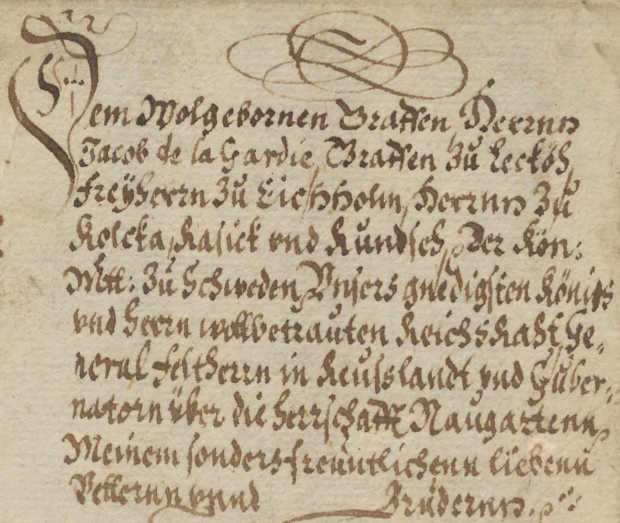 Dem Wolgebornen Graffen, Herrnn
Jacob de la Gardie, Graffen zu Leckoh,
Freÿherrn zu Eichholm, Herrnn zu
Kolcka, Kasick vnd Rundseh, Der Kön:
Mtt: zu Schweden, Vnsers gnedigsten Königs
vnd Herrn wollbetrauten Reichs Raht, Ge-
neral Feltherrn in Reusslandt vnd Guber-
natorn über die herrschafft Naugartenn,
Meinem sonders freuntlichenn liebenn
Vetternn vnnd Brudernn.